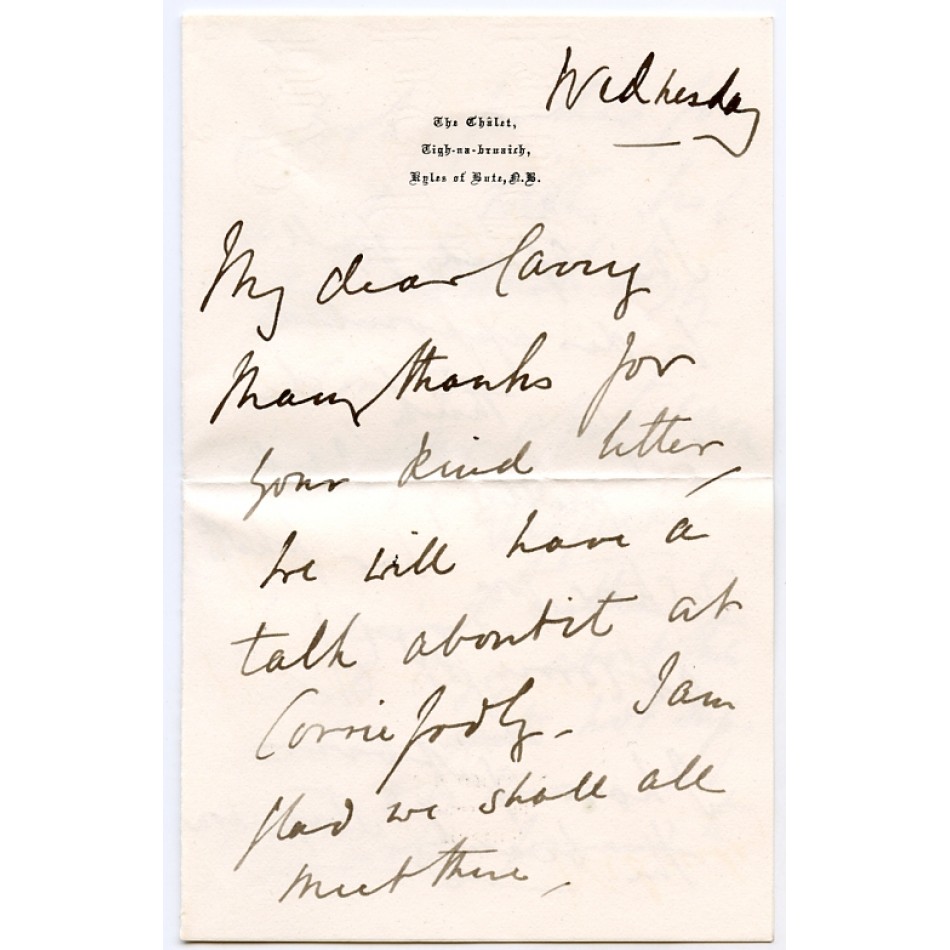 Wednesday
The Châlet,
Tigh-na-bruaich,
Kyles of Bute, N.B.
My dear Carry
Many thanks for
your kind letter,
we will have a
talk about it at
Corriefodly - I am
glad we shall all
meet there,